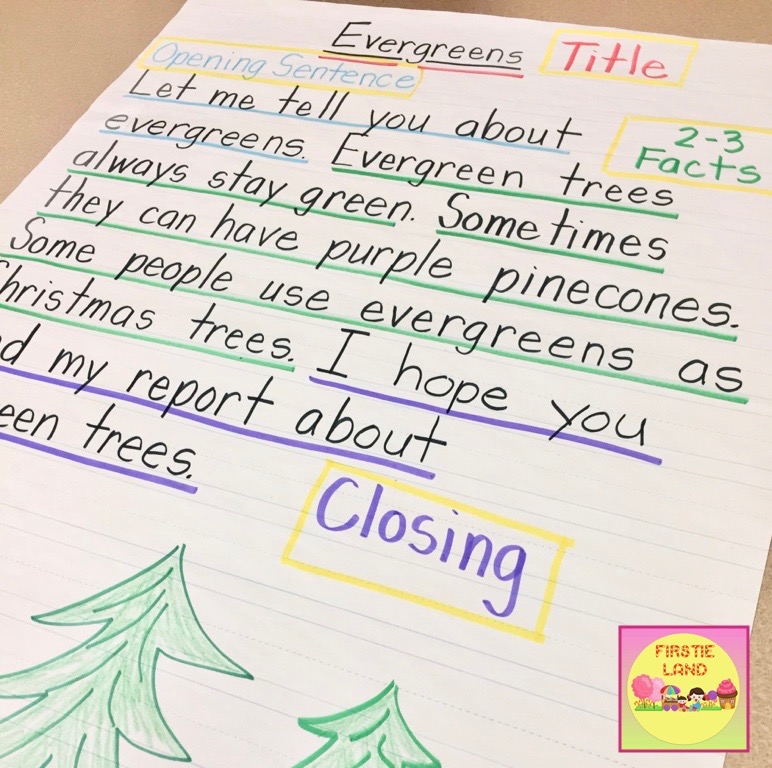 Evergreens
Title
Opening Sentence
Let me tell you about
2-3
Facts
evergreens. Evergreen trees
always stay green. Sometimes
they can have purple pinecones.
Some people use evergreens as
hristmas trees. I hope you
d my report about
een trees.
Closing
FIRSTIE
LAND